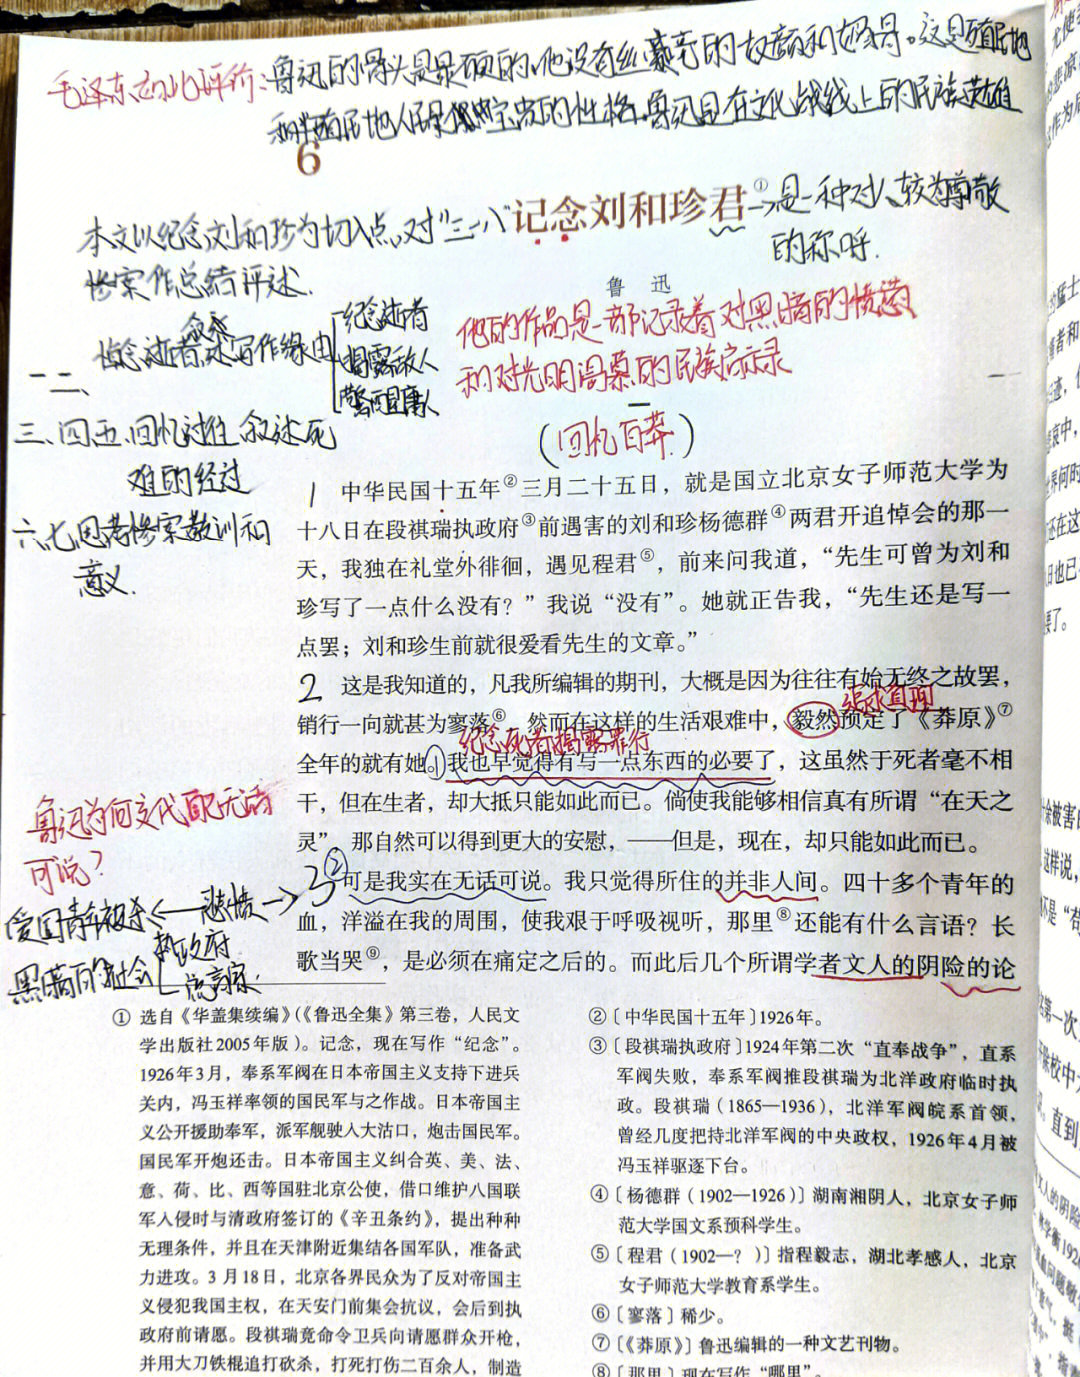 毛泽东如此评价：鲁迅的骨头是最硬的，他没有丝毫的奴颜和媚骨。这是殖民地
和半殖民地人民最可宝贵的性格。鲁迅是在文化战线上的民族英雄
6
记念刘和珍君①→是一种对人较为尊敬
的称呼.
本文以纪念刘和珍为切入点，对“三一八”
惨案作总结评述.
鲁 迅
他的作品是一部记录着对黑暗的愤懑
和对光明渴慕的民族启示录
一二、
悼念逝者，叙述写作缘由
纪念逝者
揭露敌人
警醒庸人
三、四、五、回忆过往 叙述死
难的经过
六、七思考惨案教训和
意义.
一
（回忆百莽.）
1 中华民国十五年②三月二十五日，就是国立北京女子师范大学为
十八日在段祺瑞执政府③前遇害的刘和珍杨德群④两君开追悼会的那一
天，我独在礼堂外徘徊，遇见程君⑤，前来问我道，“先生可曾为刘和
珍写了一点什么没有？”我说“没有”。她就正告我，“先生还是写一
点罢；刘和珍生前就很爱看先生的文章。”
2 这是我知道的，凡我所编辑的期刊，大概是因为往往有始无终之故罢，
追求真理
销行一向就甚为寥落⑥，然而在这样的生活艰难中，毅然预定了《莽原》⑦
纪念死者揭露罪行
全年的就有她。①我也早觉得有写一点东西的必要了，这虽然于死者毫不相
干，但在生者，却大抵只能如此而已。倘使我能够相信真有所谓“在天之
灵”，那自然可以得到更大的安慰，——但是，现在，却只能如此而已。
鲁迅为何交代无话
可说？
3②可是我实在无话可说。我只觉得所住的并非人间。四十多个青年的
爱国青年被杀←悲愤→
血，洋溢在我的周围，使我艰于呼吸视听，那里⑧还能有什么言语？长
歌当哭⑨，是必须在痛定之后的。而此后几个所谓学者文人的阴险的论
黑暗的社会
执政府
① 选自《华盖集续编》（《鲁迅全集》第三卷，人民文
学出版社2005年版）。记念，现在写作“纪念”。
1926年3月，奉系军阀在日本帝国主义支持下进兵
关内，冯玉祥率领的国民军与之作战。日本帝国主
义公开援助奉军，派军舰驶入大沽口，炮击国民军。
国民军开炮还击。日本帝国主义纠合英、美、法、
意、荷、比、西等国驻北京公使，借口维护八国联
军入侵时与清政府签订的《辛丑条约》，提出种种
无理条件，并且在天津附近集结各国军队，准备武
力进攻。3月18日，北京各界民众为了反对帝国主
义侵犯我国主权，在天安门前集会抗议，会后到执
政府前请愿。段祺瑞竟命令卫兵向请愿群众开枪，
并用大刀铁棍追打砍杀，打死打伤二百余人，制造
②〔中华民国十五年〕1926年。
③〔段祺瑞执政府〕1924年第二次“直奉战争”，直系
军阀失败，奉系军阀推段祺瑞为北洋政府临时执
政。段祺瑞（1865—1936），北洋军阀皖系首领，
曾经几度把持北洋军阀的中央政权，1926年4月被
冯玉祥驱逐下台。
④〔杨德群（1902—1926）〕湖南湘阴人，北京女子师
范大学国文系预科学生。
⑤〔程君（1902—？）〕指程毅志，湖北孝感人，北京
女子师范大学教育系学生。
⑥〔寥落〕稀少。
⑦〔《莽原》〕鲁迅编辑的一种文艺刊物。
⑧〔那里〕现在写作“哪里”。